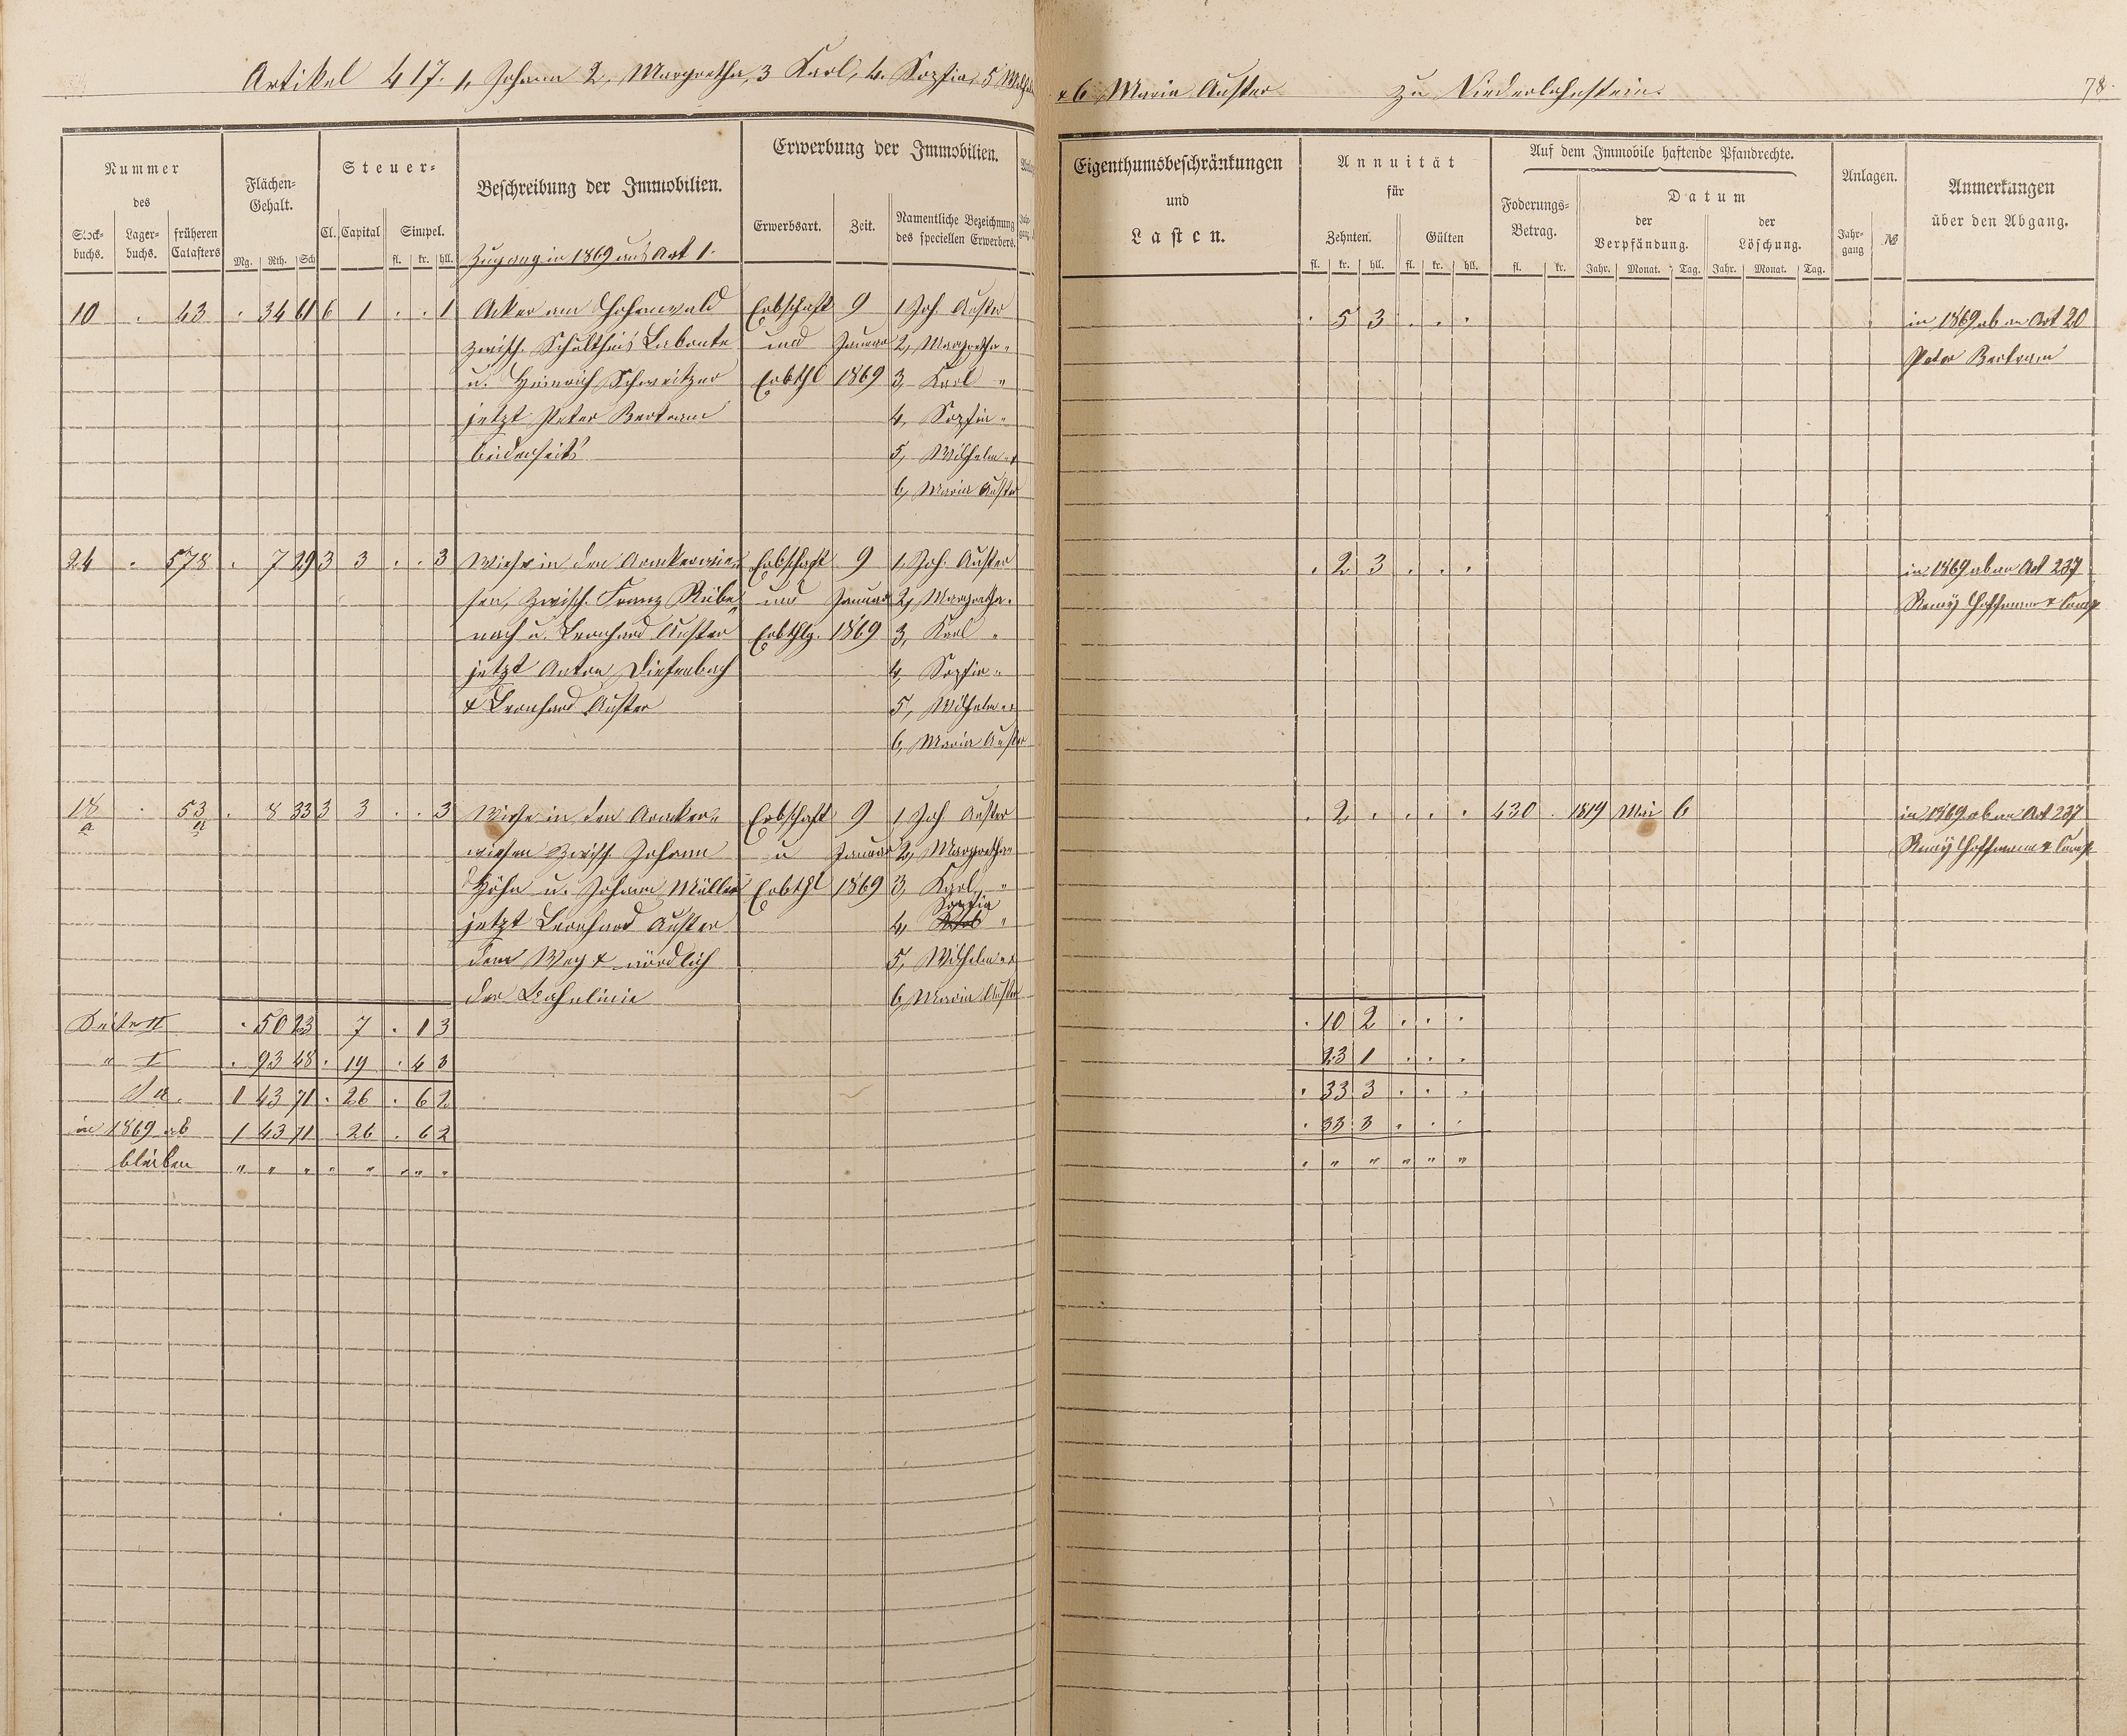 Artikel 417. 1, Johann 2, Margretha, 3 Karl, 4. Sophia, 5 Wilhelm
& 6 Maria Auster zu Niederlahnstein. 78.
Nummer
des
Stock-buchs. Lager-buchs. früheren Catasters
Flächen-Gehalt.
Mg. Rth. Sch
Steuer-
Cl. Capital Simpel.
fl. kr. hll.
Beschreibung der Immobilien.
Erwerbung der Immobilien.
Erwerbsart. Zeit. Namentliche Bezeichnung des speciellen Erwerbers.
Eigenthumsbeschränkungen
und
Lasten.
Annuität
für
Zehnten. Gülten
fl. kr. hll. fl. kr. hll.
Auf dem Immobile haftende Pfandrechte.
Foderungs-Betrag.
fl. kr.
Datum
der Verpfändung. der Löschung.
Jahr. Monat. Tag. Jahr. Monat. Tag.
Anlagen.
Jahr-gang №
Anmerkungen
über den Abgang.
Zugang in 1869 aus Art 1.
10 . 43 . 34 61 6 1 . . 1 Acker am Hohenwald Erbschaft 9 1, Joh. Auster . 5 3 . . . in 1869 ab an Art 20
zwisch. Schultheis Labonte und Januar 2, Margretha " Peter Bertram
u. Heinrich Schweitzer Erbthl 1869 3, Karl "
jetzt Peter Bertram 4, Sophia "
beiderseits 5, Wilhelm " &
6, Maria Auster
24 . 578 . 7 29 3 3 . . 3 Wiese in den Aemkerwie- Erbschaft 9 1, Joh. Auster . 2 3 . . . in 1869 ab an Art 237
sen, zwisch. Franz Rübe- und Januar 2, Margretha " Remy Hoffmann & Comp
nach u. Leonhard Auster Erbthlg. 1869 3, Karl "
jetzt Anton Diefenbach 4, Sophia "
& Leonhard Auster 5, Wilhelm " &
6, Maria Auster
18 a . 53 a . 8 33 3 3 . . 3 Wiese in den Aemker- Erbschaft 9 1, Joh Auster . 2 . . . . 430 . 1819 Mai 6 in 1869 ab an Art 237
wiesen zwisch. Johann u Januar 2, Margretha " Remy Hoffmann & Comp
Höhn u. Johann Müller Erbthl 1869 3, Karl "
jetzt Leonhard Auster 4, Sophia "
dem Weg & nördlich 5, Wilhelm " &
der Bahnlinie 6, Maria Auster
Seite II . 50 23 7 . 1 3 . 10 2 . . .
" I . 93 48 . 19 . 4 3 23 1 . . .
Sa. 1 43 71 . 26 . 6 2 . 33 3 . . .
in 1869 ab 1 43 71 . 26 . 6 2 . 33 3 . . .
bleiben " " " " " " " " " " " " " "